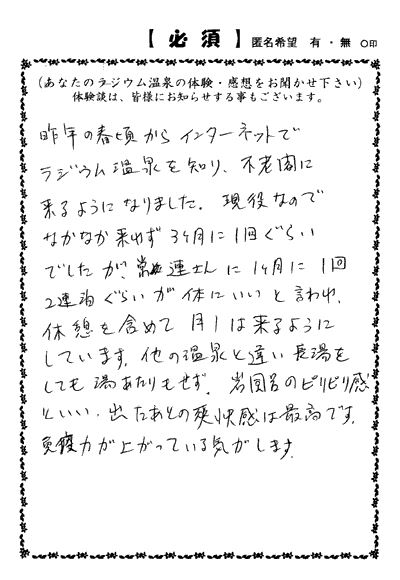 【 必 須 】 匿名希望 有 ・ 無 ○印
(あなたのラジウム温泉の体験・感想をお聞かせ下さい)
体験談は、皆様にお知らせする事もございます。
昨年の春頃からインターネットで
ラジウム温泉を知り、不老閣に
来るようになりました。現役なので
なかなか来れず 3ヶ月に1回ぐらい
でしたが、常連さんに1ヶ月に1回
2連泊ぐらいが体にいいと言われ、
休憩を含めて月1は来るように
しています。他の温泉と違い長湯を
しても湯あたりもせず、岩図呂のピリピリ感
といい、出たあとの爽快感は最高です。
免疫力が上がっている気がします。